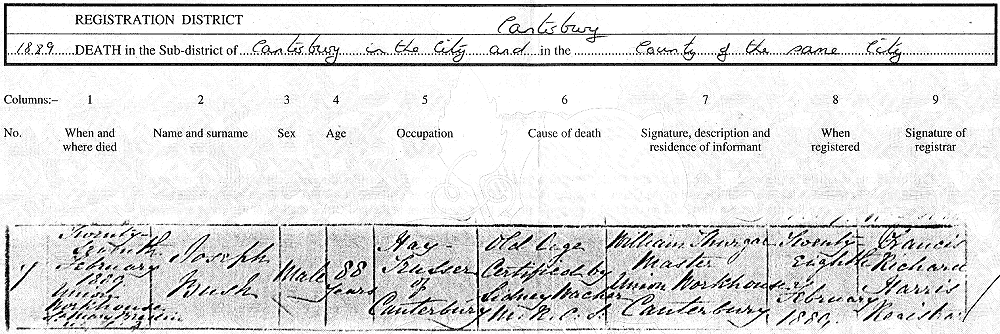 REGISTRATION DISTRICT Canterbury
1889 DEATH in the Sub-district of Canterbury in the City and in the County of the same City
Columns:– 1 2 3 4 5 6 7 8 9
No. When and where died Name and surname Sex Age Occupation Cause of death Signature, description and residence of informant When registered Signature of registrar
Twenty- Hay- Old Age William Twenty- Francis
Seventh Joseph Trusser Certified by Master Eighth Richard
February Male 88 of Sidney Wacher Union Workhouse February Harris
1889 Bush Years Canterbury M.R.C.S. Canterbury 1889. Registrar
Union
Workhouse